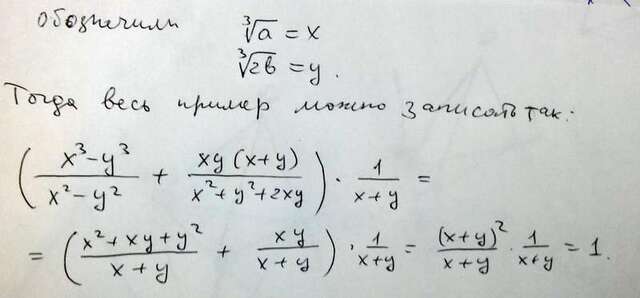 обозначили ∛a = x
∛2b = y.
Тогда весь пример можно записать так:
((x³-y³)/(x²-y²) + (xy(x+y))/(x²+y²+2xy)) · 1/(x+y) =
= ((x²+xy+y²)/(x+y) + (xy)/(x+y)) · 1/(x+y) = (x+y)²/(x+y) · 1/(x+y) = 1.